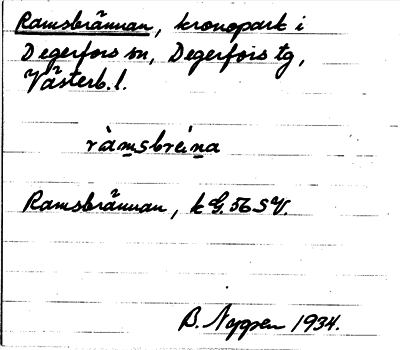 Ramsbrännan, kronopark i
Degerfors sn, Degerfors tg,
Västerb.l.
ràmsbreina
Ramsbrännan, k G. 56 SV.
B. Nygren 1934.